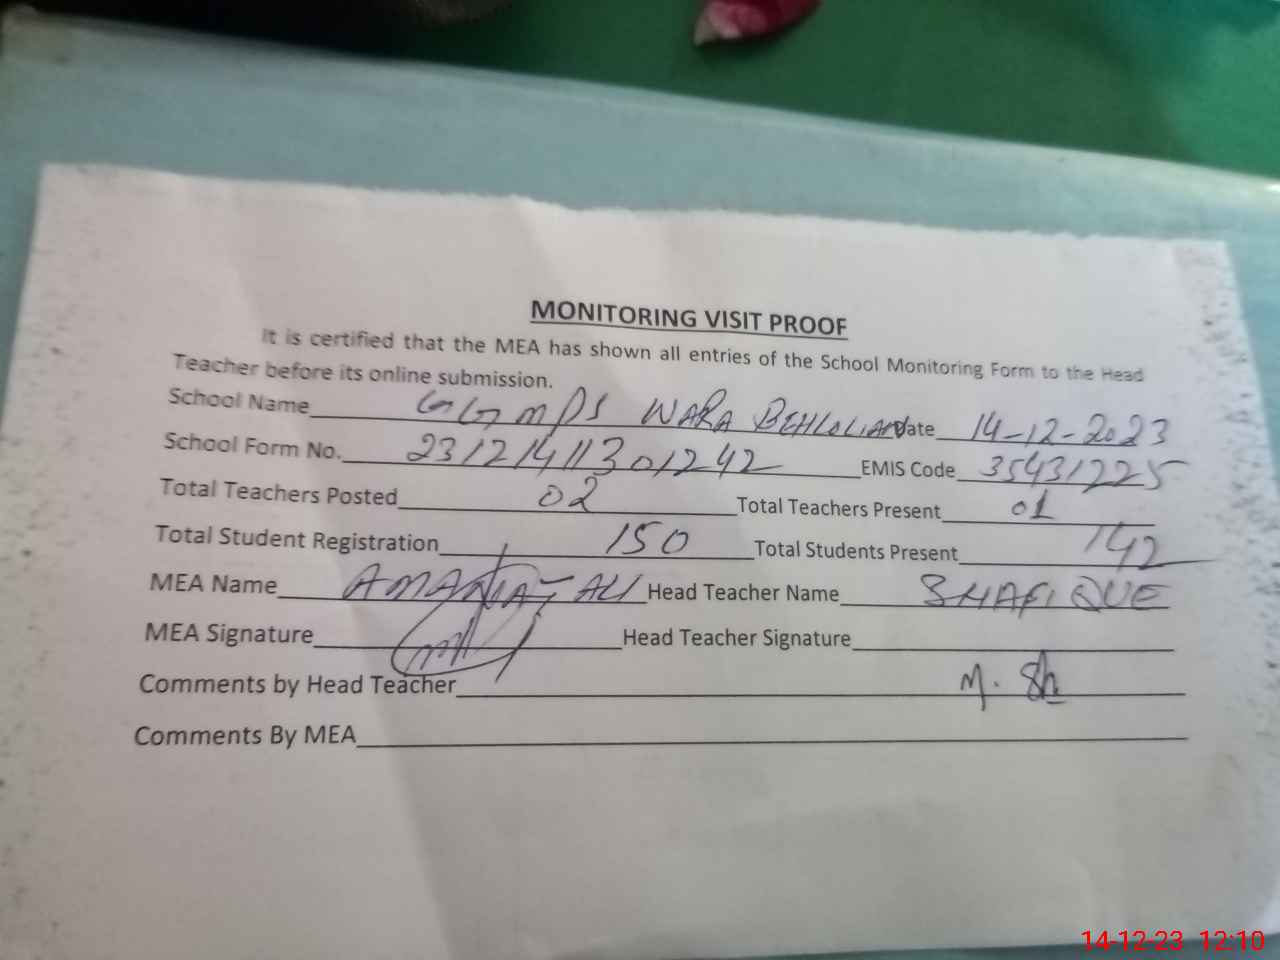 MONITORING VISIT PROOF
It is certified that the MEA has shown all entries of the School Monitoring Form to the Head
Teacher before its online submission.
School Name GGMPS WARA BEHLOLIAN Date 14-12-2023
School Form No. 23121411301242 EMIS Code 35431225
Total Teachers Posted 02 Total Teachers Present 01
Total Student Registration 150 Total Students Present 142
MEA Name AMANAT ALI Head Teacher Name SHAFIQUE
MEA Signature Head Teacher Signature
Comments by Head Teacher M. Sh
Comments By MEA
14-12-23 12:10